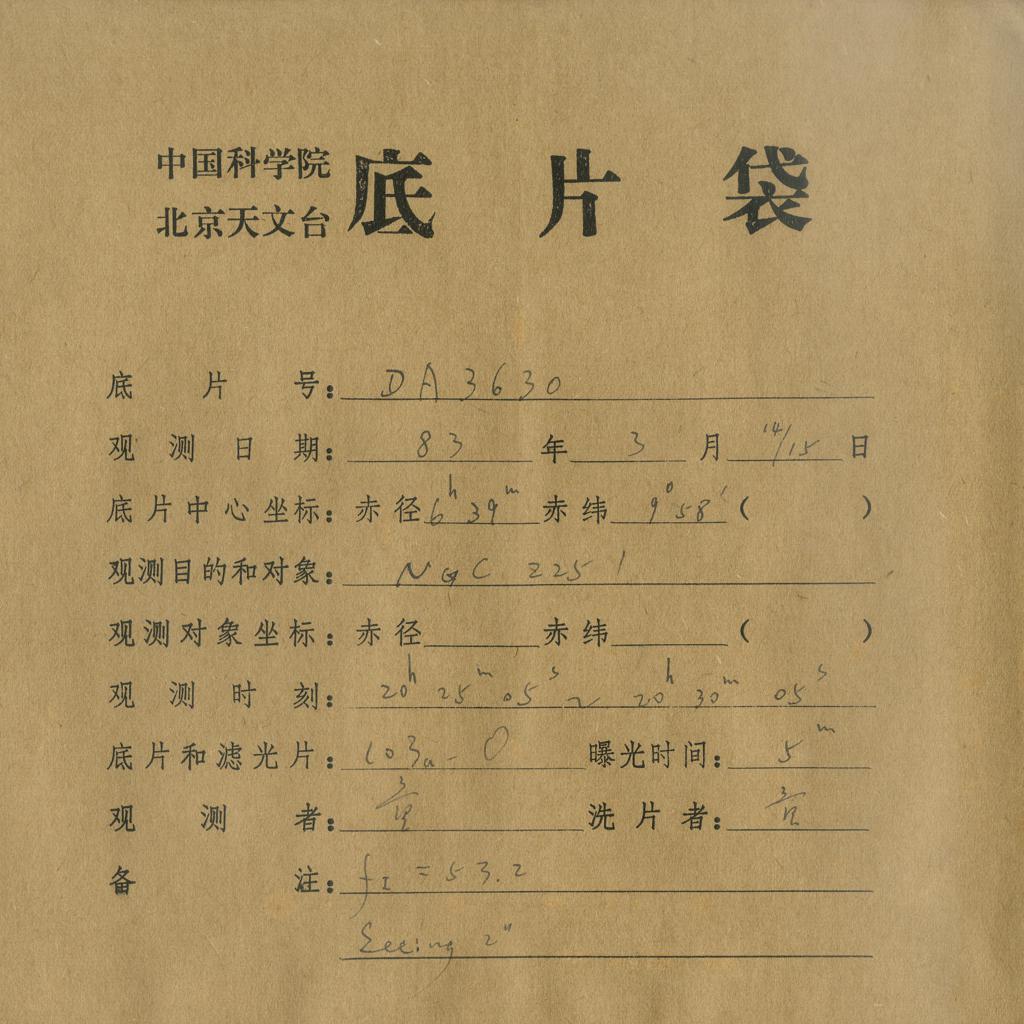 中国科学院
北京天文台
底片袋
底片号: DA3630
观测日期: 83 年 3 月 14/15 日
底片中心坐标: 赤径 6h 39m 赤纬 9°58′ ( )
观测目的和对象: NGC 2251
观测对象坐标: 赤径 赤纬 ( )
观测时刻: 20h 25m 05s ~ 20h 30m 05s
底片和滤光片: 103a-O 曝光时间: 5m
观测者: 洗片者:
备注: fI = 53.2
Seeing 2"